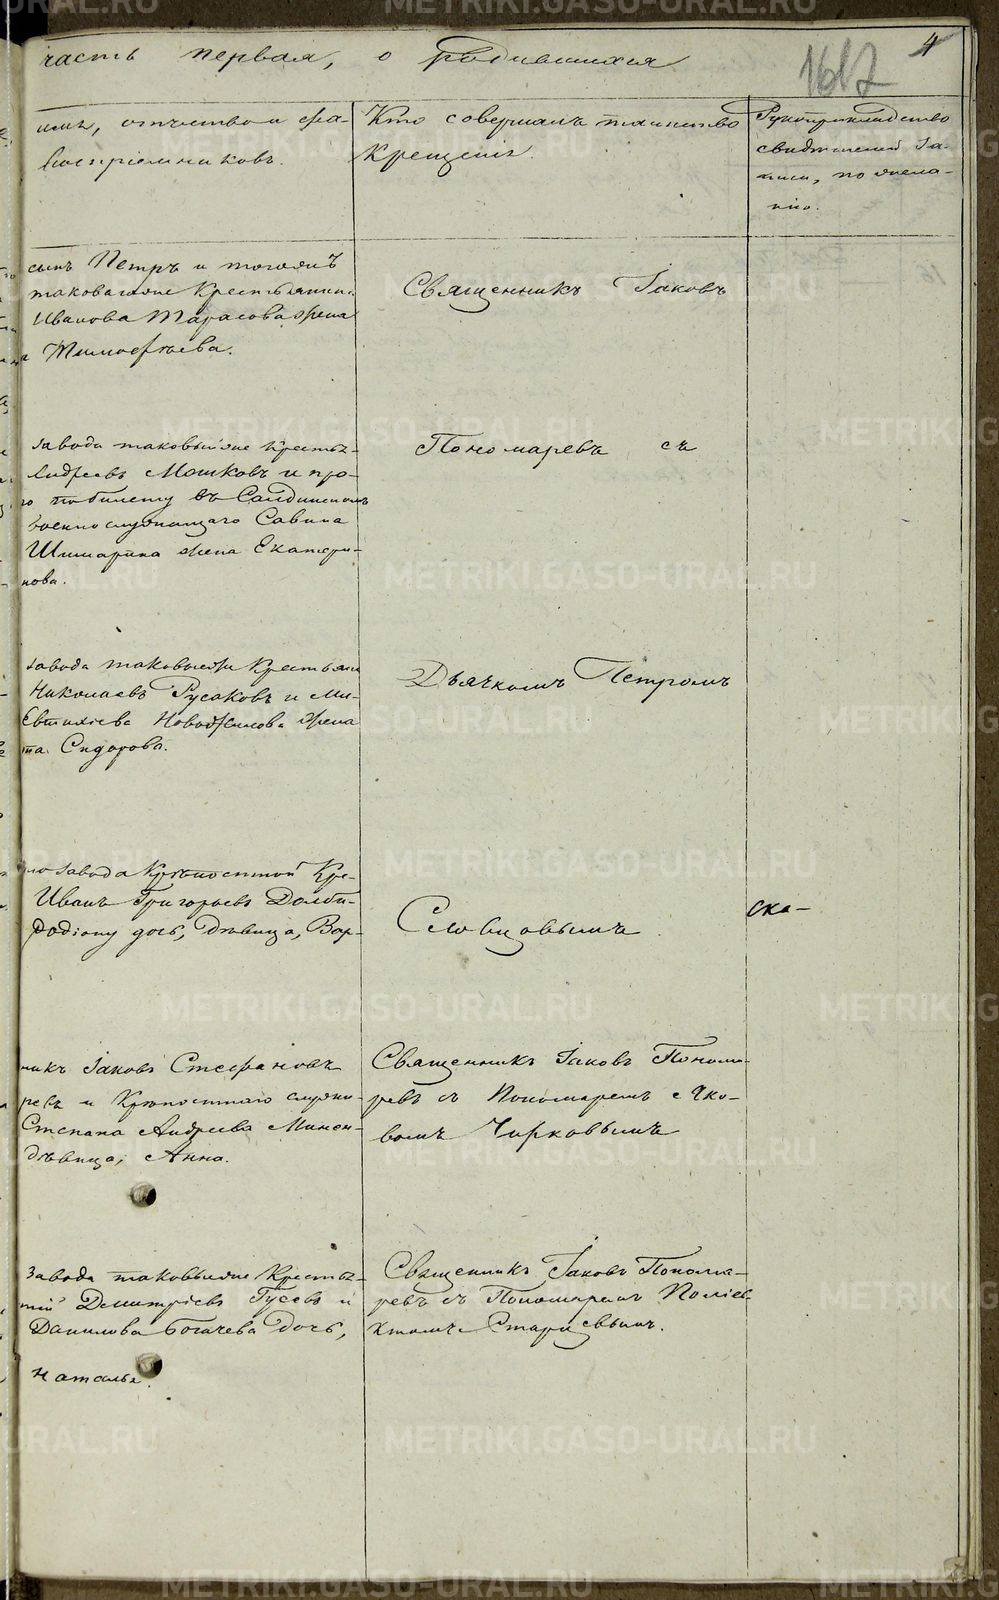 4
1617
часть первая, о родившихся
имя, отчество и фа-
воспріемниковъ.
Кто совершалъ таинство
Крещенія.
Рукоприкладство
свидѣтелей за-
писи, по жела-
нію.
сынъ Петръ и тогожъ
таковагоже Крестьянина
Иванова Тарасова жена
Тимофѣева.
Священникъ Іаковъ
завода таковыйже Кресть-
Андреевъ Мошковъ и про-
по билету въ Салдинскомъ
военнослужащаго Савина
Шимарина жена Екатери-
нова.
Пономаревъ съ
завода таковыйже Крестьян
Николаевъ Русаковъ и Ми-
Евтихіева Новожилова жена
Сидорова.
Дьячкомъ Петромъ
завода Крѣпостной Кре-
Иванъ Григорьевъ Долби-
Родіону дочь, дѣвица, Вар-
Словцовымъ
ска-
никъ Іаковъ Стефановъ
ревъ и Крѣпостнаго служи-
Степана Андреева Минѣи-
дѣвица, Анна.
Священникъ Іаковъ Понома-
ревъ съ Пономаремъ Яко-
вомъ Чирковымъ
завода таковыйже Кресть-
Димитріевъ Гусевъ и
Данилова Богачева дочь,
Наталья.
Священникъ Іаковъ Понома-
ревъ съ Пономаремъ Поліев-
ктомъ Старицевымъ.
METRIKI.GASO-URAL.RU